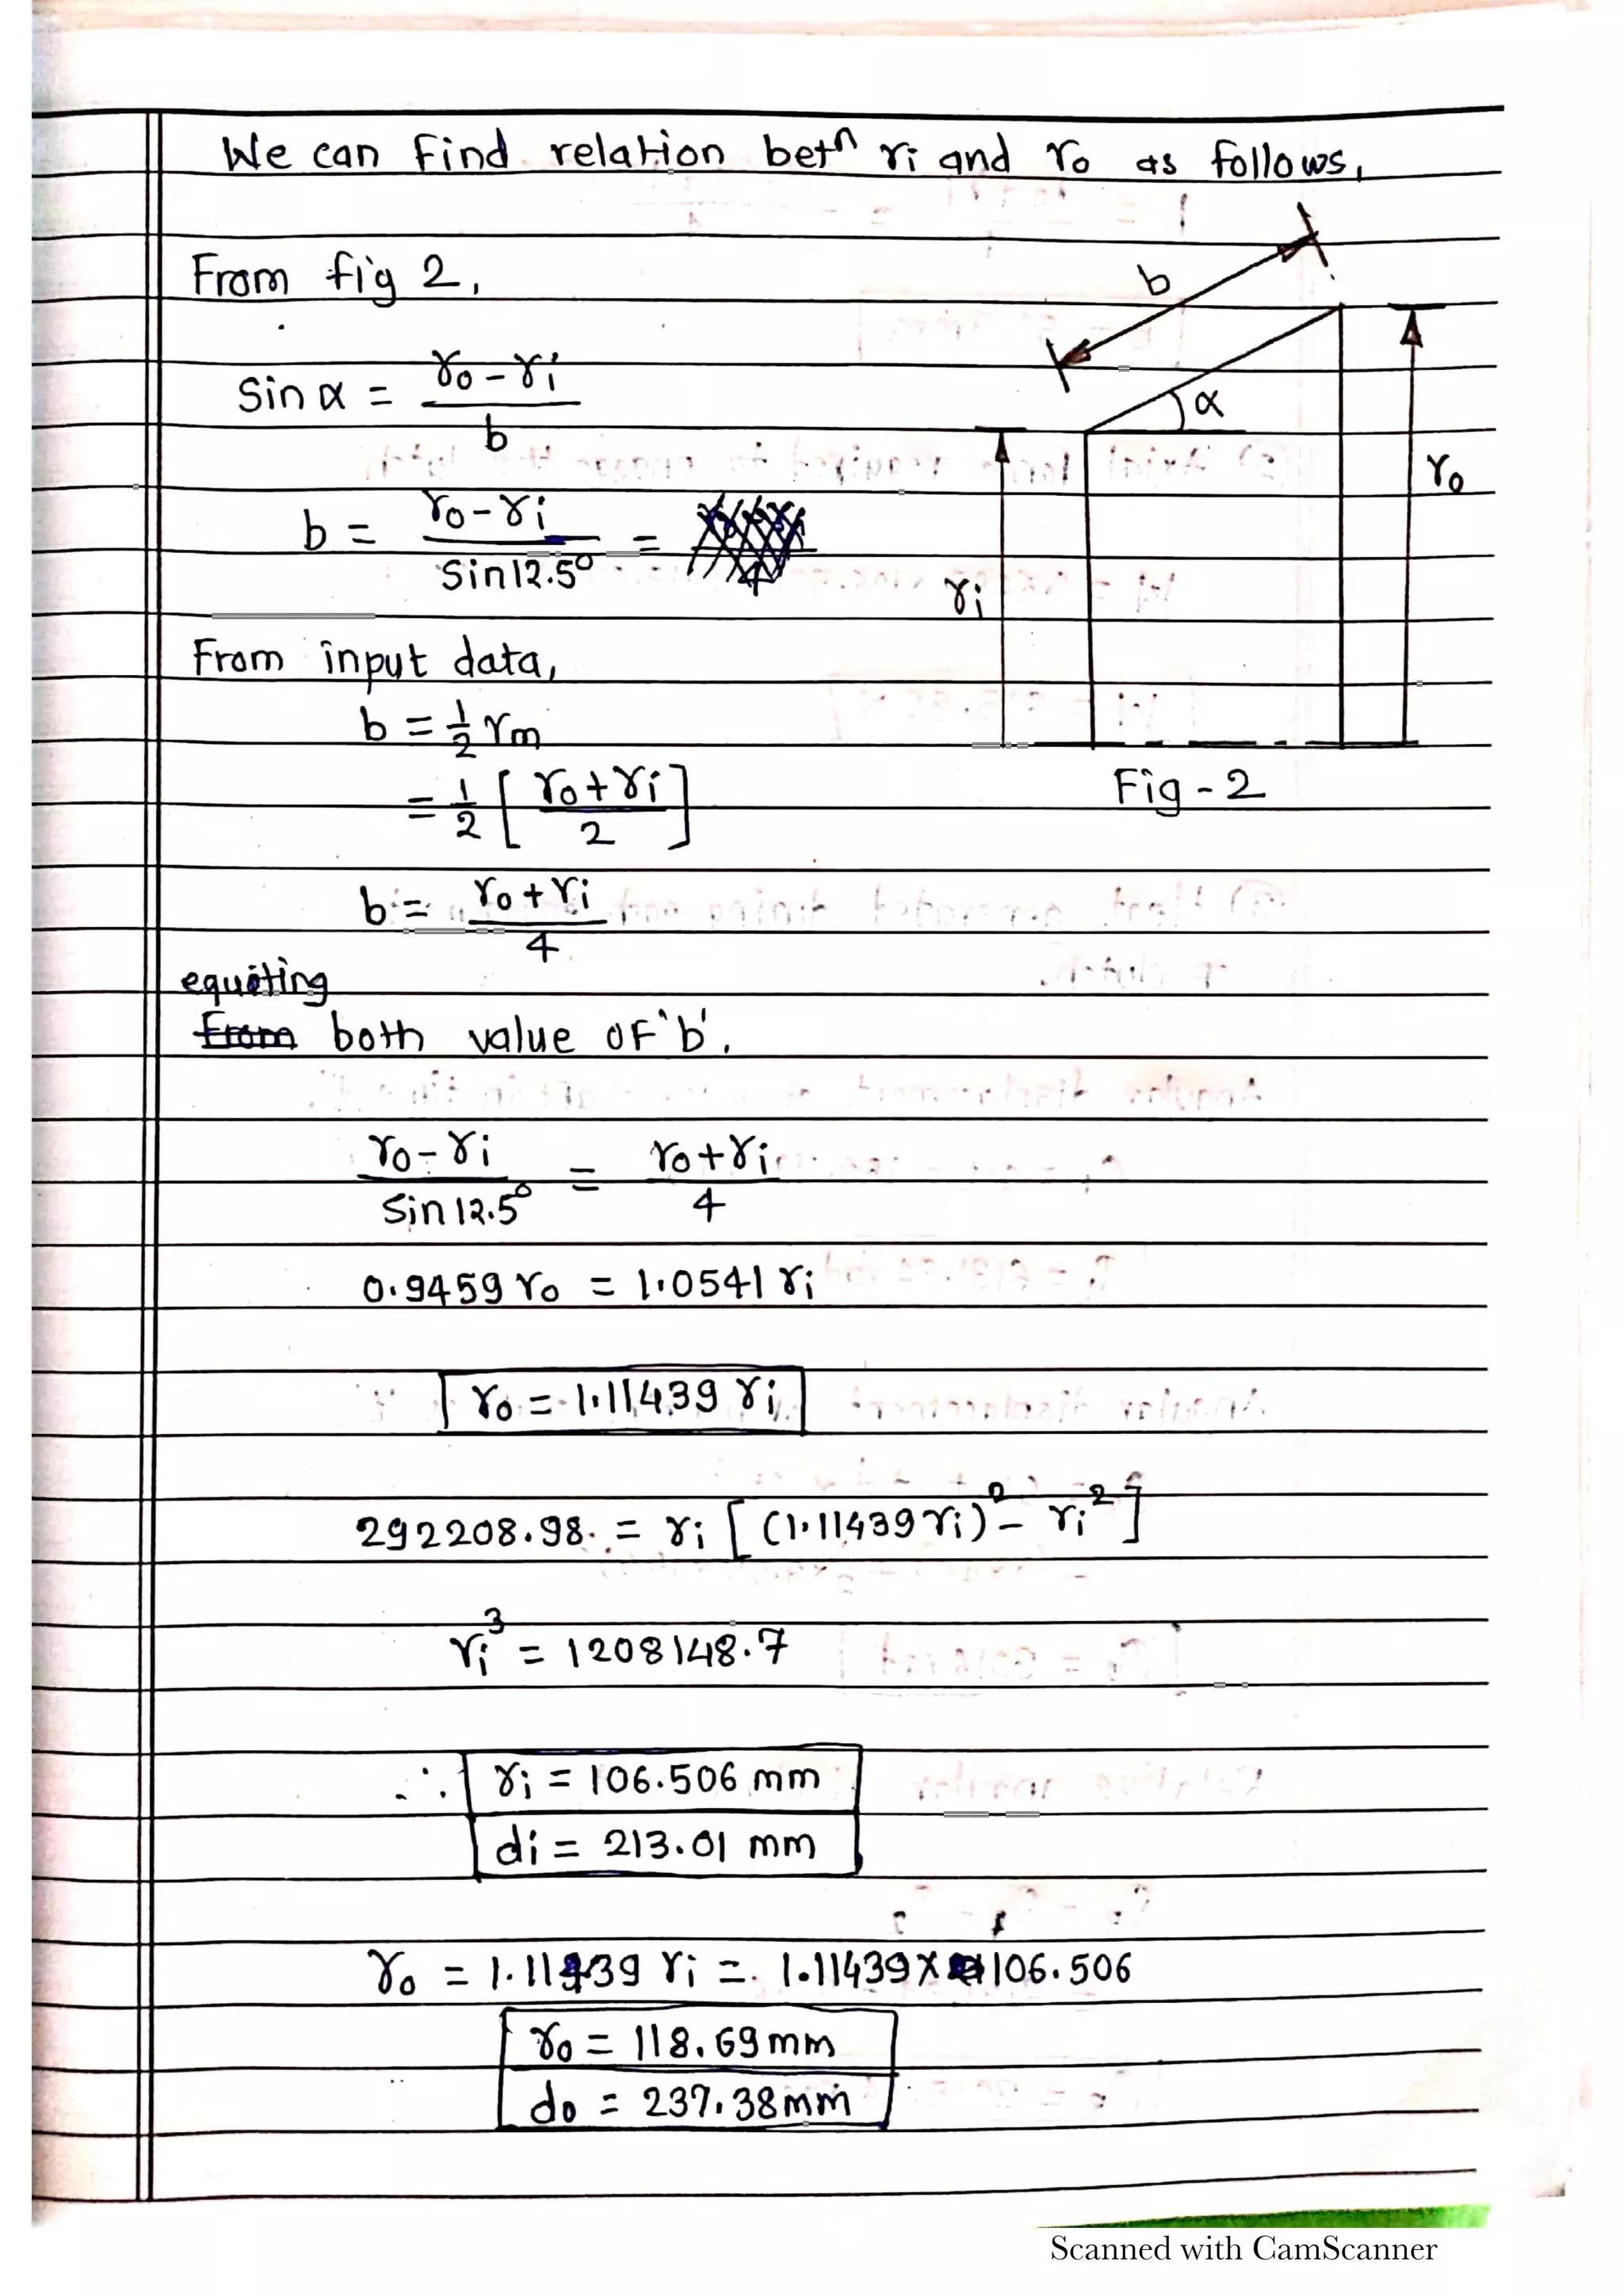 We can find relation betn ri and ro as follows,
From fig 2,
Sin α = ro - ri / b
b = ro - ri / Sin 12.5° =
From input data,
b = 1/2 rm
= 1/2 [ ro + ri / 2 ]
b = ro + ri / 4
equating
From both value of 'b'.
ro - ri / Sin 12.5° = ro + ri / 4
0.9459 ro = 1.0541 ri
ro = 1.11439 ri
292208.98 = ri [ (1.11439 ri)² - ri² ]
ri³ = 1208148.7
∴ ri = 106.506 mm
di = 213.01 mm
ro = 1.11439 ri = 1.11439 X 106.506
ro = 118.69 mm
do = 237.38 mm
b
α
ri
ro
Fig - 2
Scanned with CamScanner